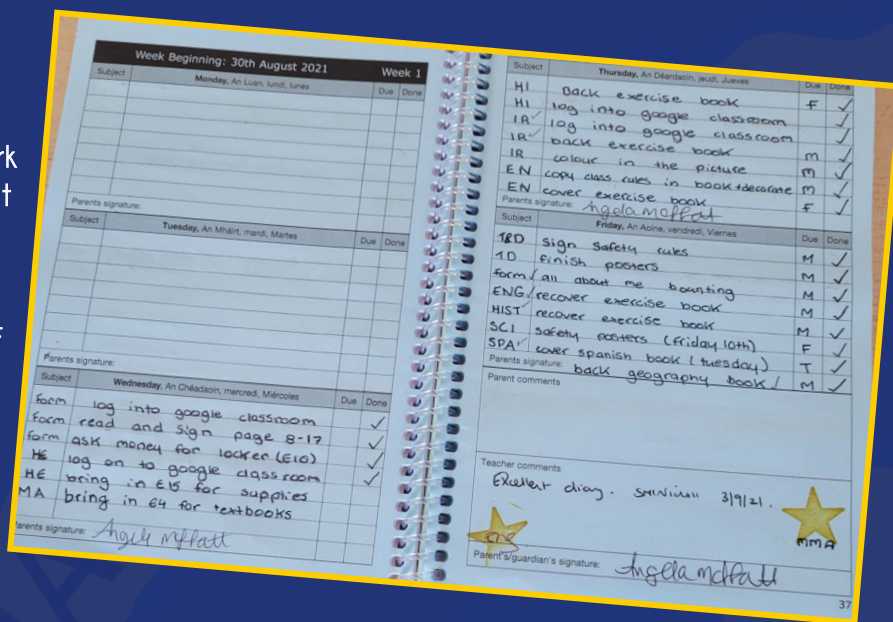 rk
t
Week Beginning: 30th August 2021 Week 1
Subject Monday, An Luan, lundi, lunes Due Done
Parents signature:
Subject Tuesday, An Mháirt, mardi, Martes Due Done
Parents signature:
Subject Wednesday, An Chéadaoin, mercredi, Miércoles Due Done
form log into google classroom ✓
form read and sign page 8-17 ✓
form ask money for locker (£10) ✓
HE log on to google classroom ✓
HE bring in £15 for supplies
MA bring in £4 for textbooks
Parents signature: Angela Moffatt
Subject Thursday, An Déardaoin, jeudi, Jueves Due Done
HI Back exercise book F ✓
HI log into google classroom ✓
IR ✓ log into google classroom ✓
IR ✓ back exercise book m ✓
IR colour in the picture m ✓
EN copy class rules in book + decorate m ✓
EN cover exercise book F ✓
Parents signature: Angela Moffatt
Subject Friday, An Aoine, vendredi, Viernes Due Done
T&D sign safety rules M ✓
TD finish posters M ✓
form / all about me bounting M ✓
ENG / recover exercise book M ✓
HIST ✓ recover exercise book M ✓
SCI safety posters (friday 10th) F ✓
SPA ✓ cover spanish book (tuesday) T ✓
Parents signature: back geography book / M ✓
Parent comments
Teacher comments
Excellent diary. 3/9/21.
MMA
Parent's/guardian's signature: Angela Moffatt
37